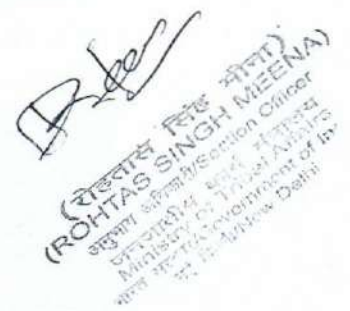 (रोहतास सिंह मीना)
(ROHTAS SINGH MEENA)
अनुभाग अधिकारी/Section Officer
जनजातीय कार्य मंत्रालय
Ministry of Tribal Affairs
भारत सरकार/Government of In
नई दिल्ली/New Delhi